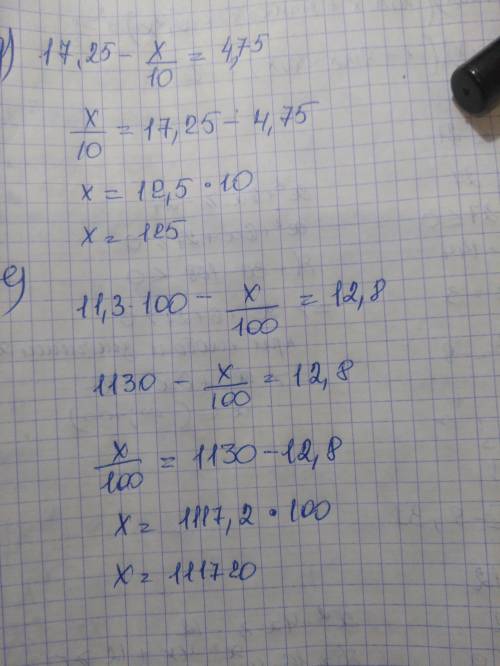 д) 17,25 - x/10 = 4,75
x/10 = 17,25 - 4,75
x = 12,5 · 10
x = 125
е) 11,3 · 100 - x/100 = 12,8
1130 - x/100 = 12,8
x/100 = 1130 - 12,8
x = 1117,2 · 100
x = 111720